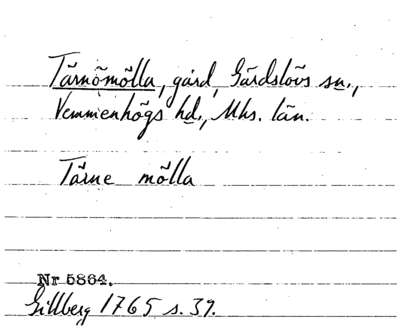 Tärnömölla, gård, Gärdslövs sn.,
Vemmenhögs hd., Mhs. län.
Tärne mölla
Nr 5864.
Gillberg 1765 s. 39.